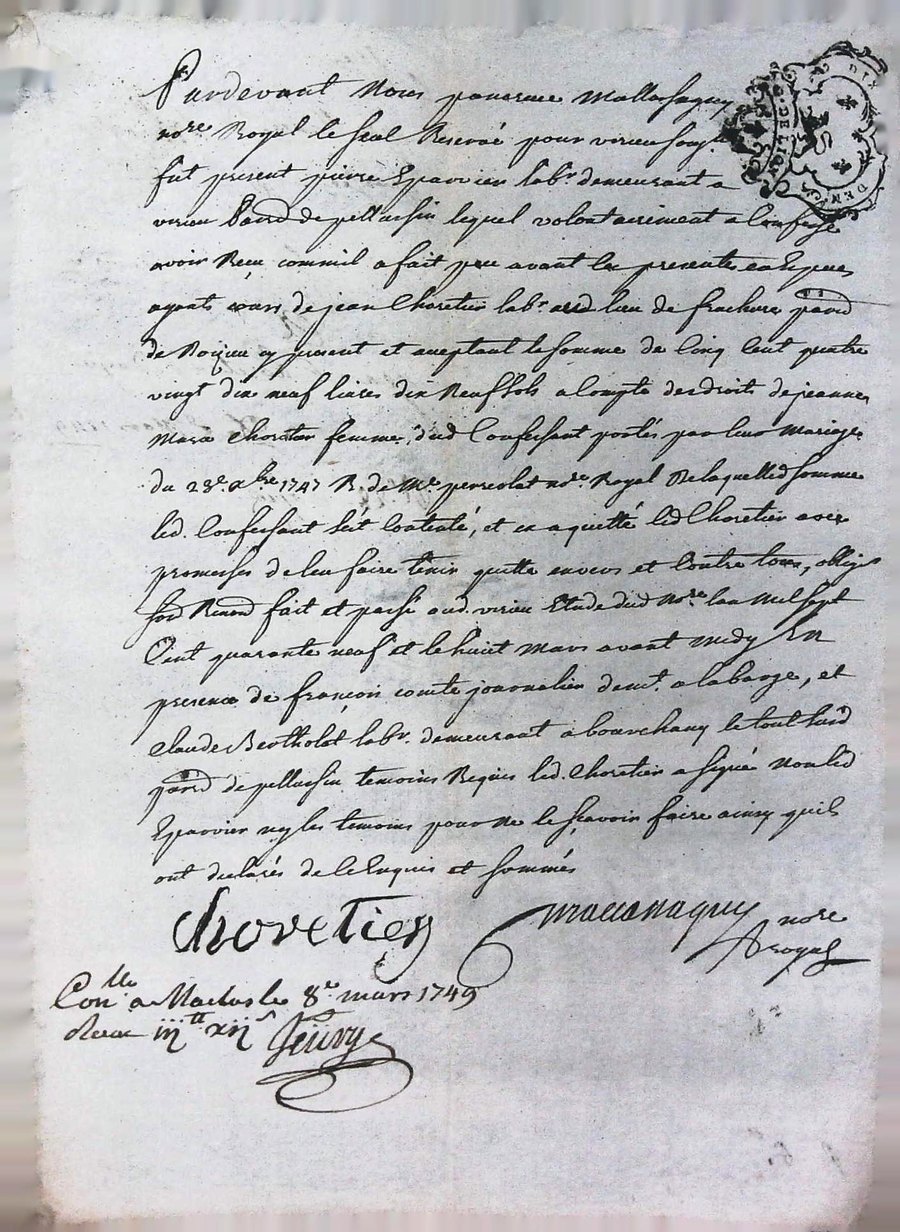 Pardevant Nous
nore Royal le seal Reservé pour virieu
fut present pierre Eparvier labr. demeurant a
virieu parr de pellussin lequel volontairement a Confessé
avoir Receu comme il a fait peu avant les presentes en Espèces
ayants cours de jean Choretier labr. lieu de parr
de Roizieu cy present et aceptant la somme de Cinq Cent quatre
vingt dix neuf livres dix Neuf sols a Compte des droits de jeanne
Marie Choretier femme dud Confessant portés par leur Mariage
du 28e. xbre 1747 R. de Me. nore. Royal De laquelled somme
led. Confessant s'est Contenté, et en a quitté led Choretier avec
promesses de l'en faire tenir quitte envers et Contre tous,
fait et passé aud. virieu Etude dud Nore. l'an Mil sept
Cent quarante neuf et le huict Mars avant midy En
presence de françois comte journalier demt. a labarge, et
Claude Bertholot labr. demeurant à bourchany le tout susd
parr de pellussin temoins Requis led. Choretier a signé Non led
Eparvier ny les temoins pour Ne le sçavoir faire ainsy quils
ont declarés de ce Enquis et sommés
Chovetien
nore
royal
Conlle a Maclas le 8e. mars 1749